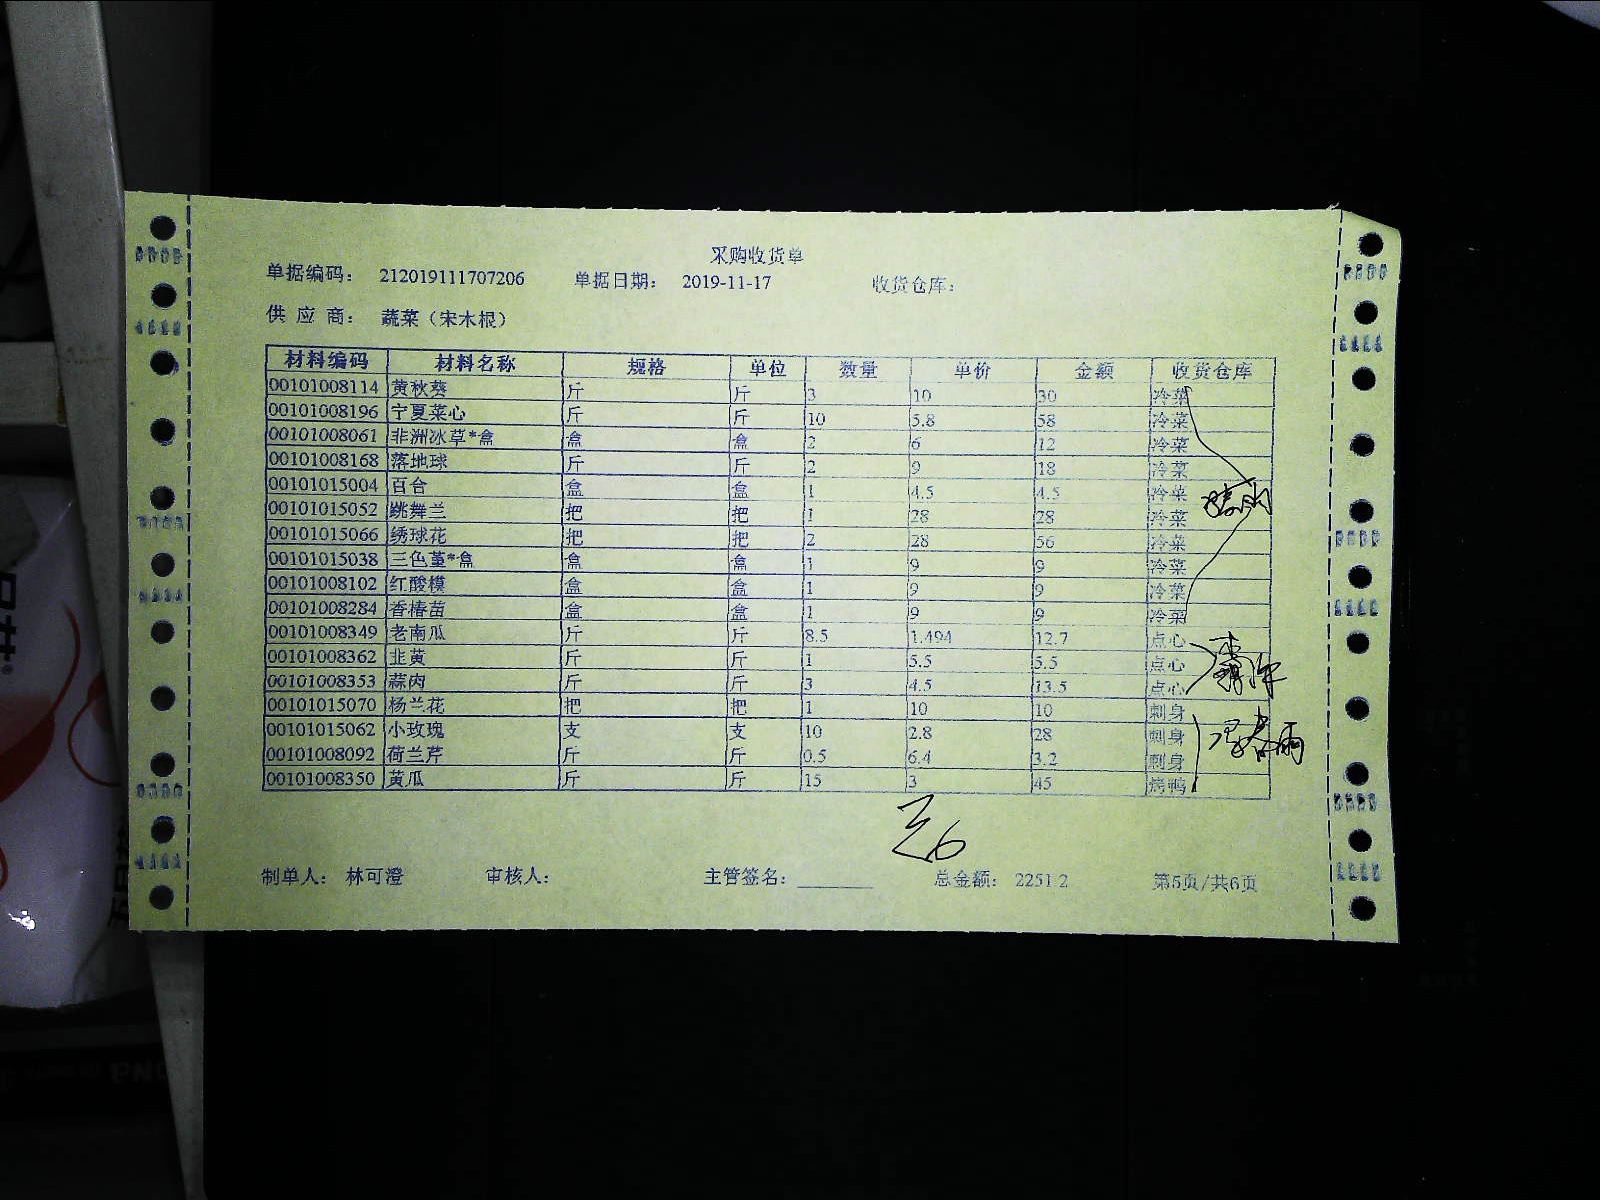 采购收货单
单据编码： 212019111707206 单据日期： 2019-11-17 收货仓库：
供 应 商： 蔬菜（宋木根）
材料编码 材料名称 规格 单位 数量 单价 金额 收货仓库
00101008114 黄秋葵 斤 斤 3 10 30 冷菜
00101008196 宁夏菜心 斤 斤 10 5.8 58 冷菜
00101008061 非洲冰草*盒 盒 盒 2 6 12 冷菜
00101008168 落地球 斤 斤 2 9 18 冷菜
00101015004 百合 盒 盒 1 4.5 4.5 冷菜
00101015052 跳舞兰 把 把 1 28 28 冷菜
00101015066 绣球花 把 把 2 28 56 冷菜
00101015038 三色堇*盒 盒 盒 1 9 9 冷菜
00101008102 红酸模 盒 盒 1 9 9 冷菜
00101008284 香椿苗 盒 盒 1 9 9 冷菜
00101008349 老南瓜 斤 斤 8.5 1.494 12.7 点心
00101008362 韭黄 斤 斤 1 5.5 5.5 点心
00101008353 蒜肉 斤 斤 3 4.5 13.5 点心
00101015070 杨兰花 把 把 1 10 10 刺身
00101015062 小玫瑰 支 支 10 2.8 28 刺身
00101008092 荷兰芹 斤 斤 0.5 6.4 3.2 刺身
00101008350 黄瓜 斤 斤 15 3 45 烤鸭
制单人： 林可澄 审核人： 主管签名： 总金额： 2251.2 第5页/共6页